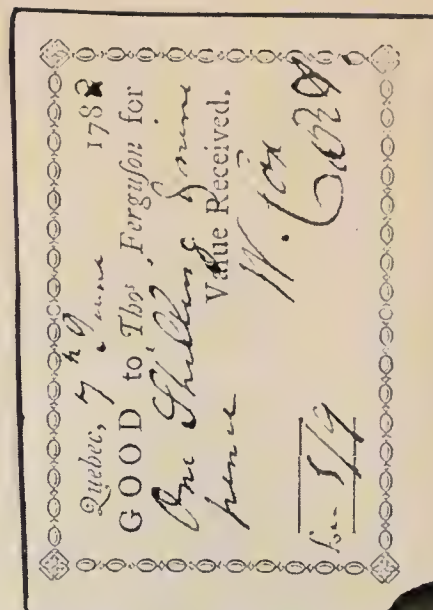 Quebec, 7th June 1782
GOOD to Thos Ferguſon for
One Shilling & nine
pence Value Received.
W. Cox
For 1/9